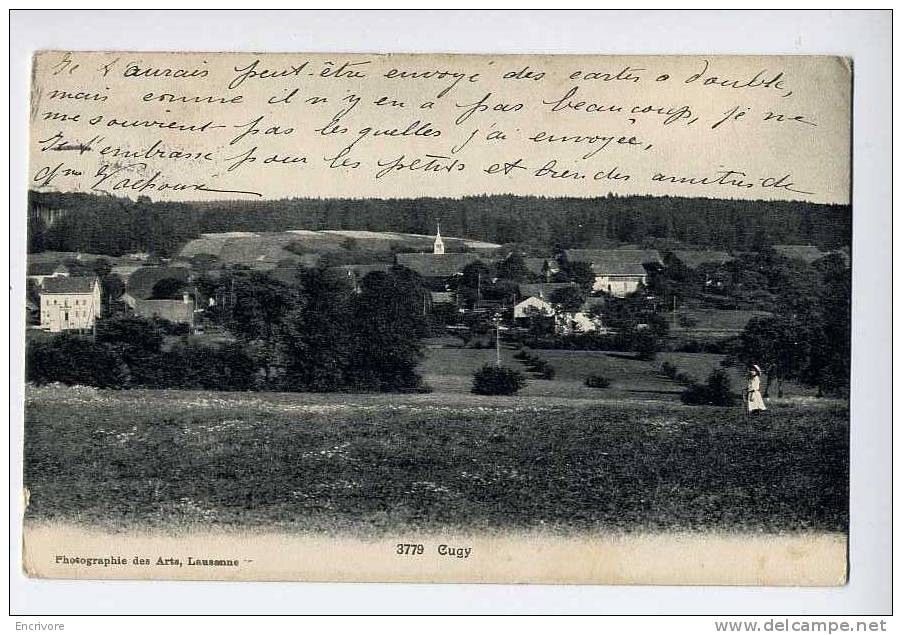 Je t'aurais peut-être envoyé des cartes à double,
mais comme il n'y en a pas beaucoup, je ne
me souvient pas lesquelles j'ai envoyée,
Je t'embrasse pour les petits et bien des amitiés de
3779 Cugy
Photographie des Arts, Lausanne
Encrivore
www.delcampe.net